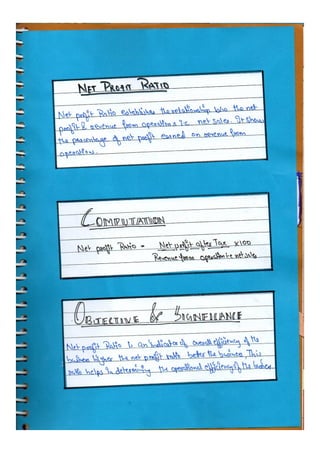 NET PROFIT RATIO
Net profit Ratio establishes the relationship b/w the net
profit & revenue from operations i.e. net sales. It shows
the percentage of net profit earned on revenue from
operation.
COMPUTATION
Net profit Ratio = Net profit after Tax X100
Revenue from operation i.e net sales
OBJECTIVE & SIGNIFICANCE
Net profit Ratio is an indicator of overall efficiency of the
business higher the net profit ratio better the business. This
ratio helps in determining the operational efficiency of the business.